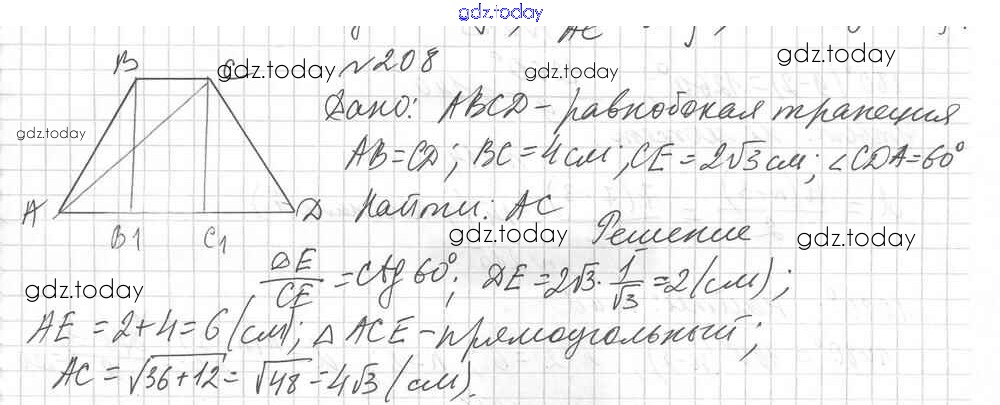 gdz.today
AC
gdz.today
B
gdz.today
№208
gdz.today
gdz.today
Дано: ABCD - равнобокая трапеция
AB = CD; BC = 4 см; CE = 2√3 см; ∠CDA = 60°
A
D
Найти: AC
B1
C1
gdz.today
Решение
gdz.today
DE/CE = ctg 60°; DE = 2√3 · 1/√3 = 2 (см);
gdz.today
AE = 2 + 4 = 6 (см); △ ACE - прямоугольный;
AC = √36 + 12 = √48 = 4√3 (см).